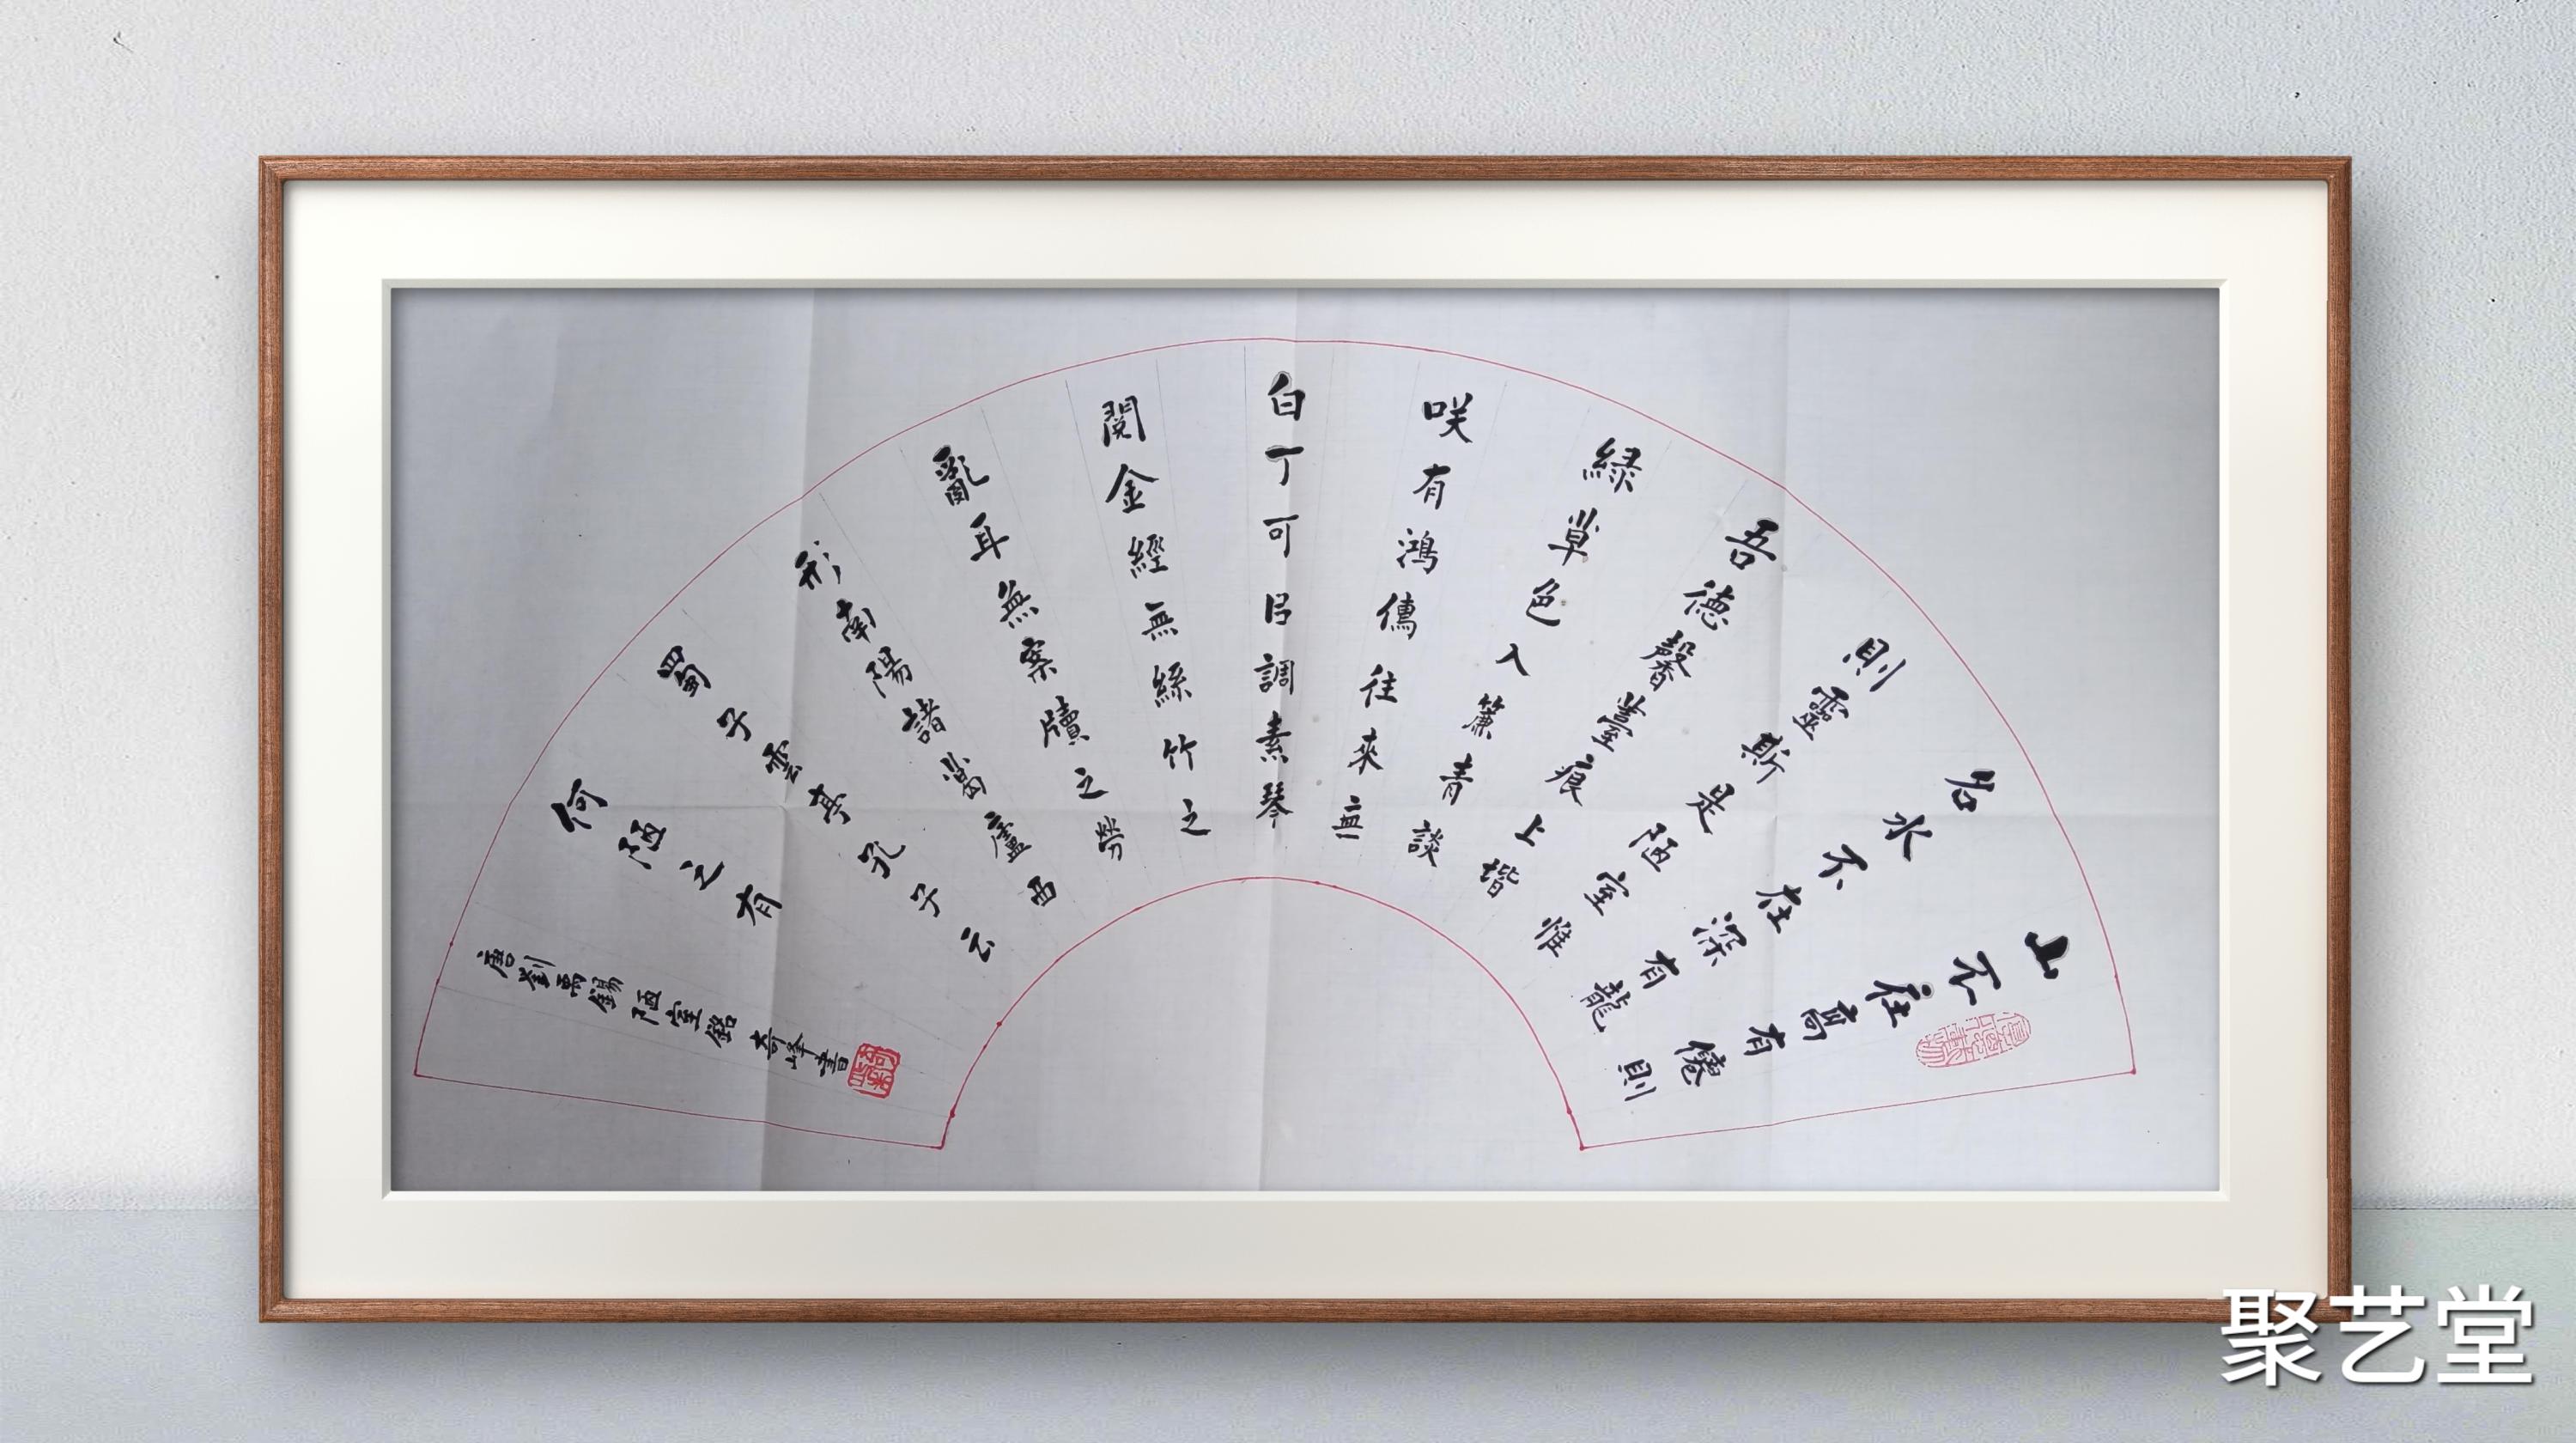 山不在高有僊則
名水不在深有龍
則靈斯是陋室惟
吾德馨薹痕上堦
綠草色入簾青談
咲有鴻儒往來無
白丁可㠯調素琴
閱金經無絲竹之
亂耳無案牘之勞
形南陽諸葛廬西
蜀子雲亭孔子云
何陋之有
唐劉禹錫陋室銘 奇峰書
聚艺堂